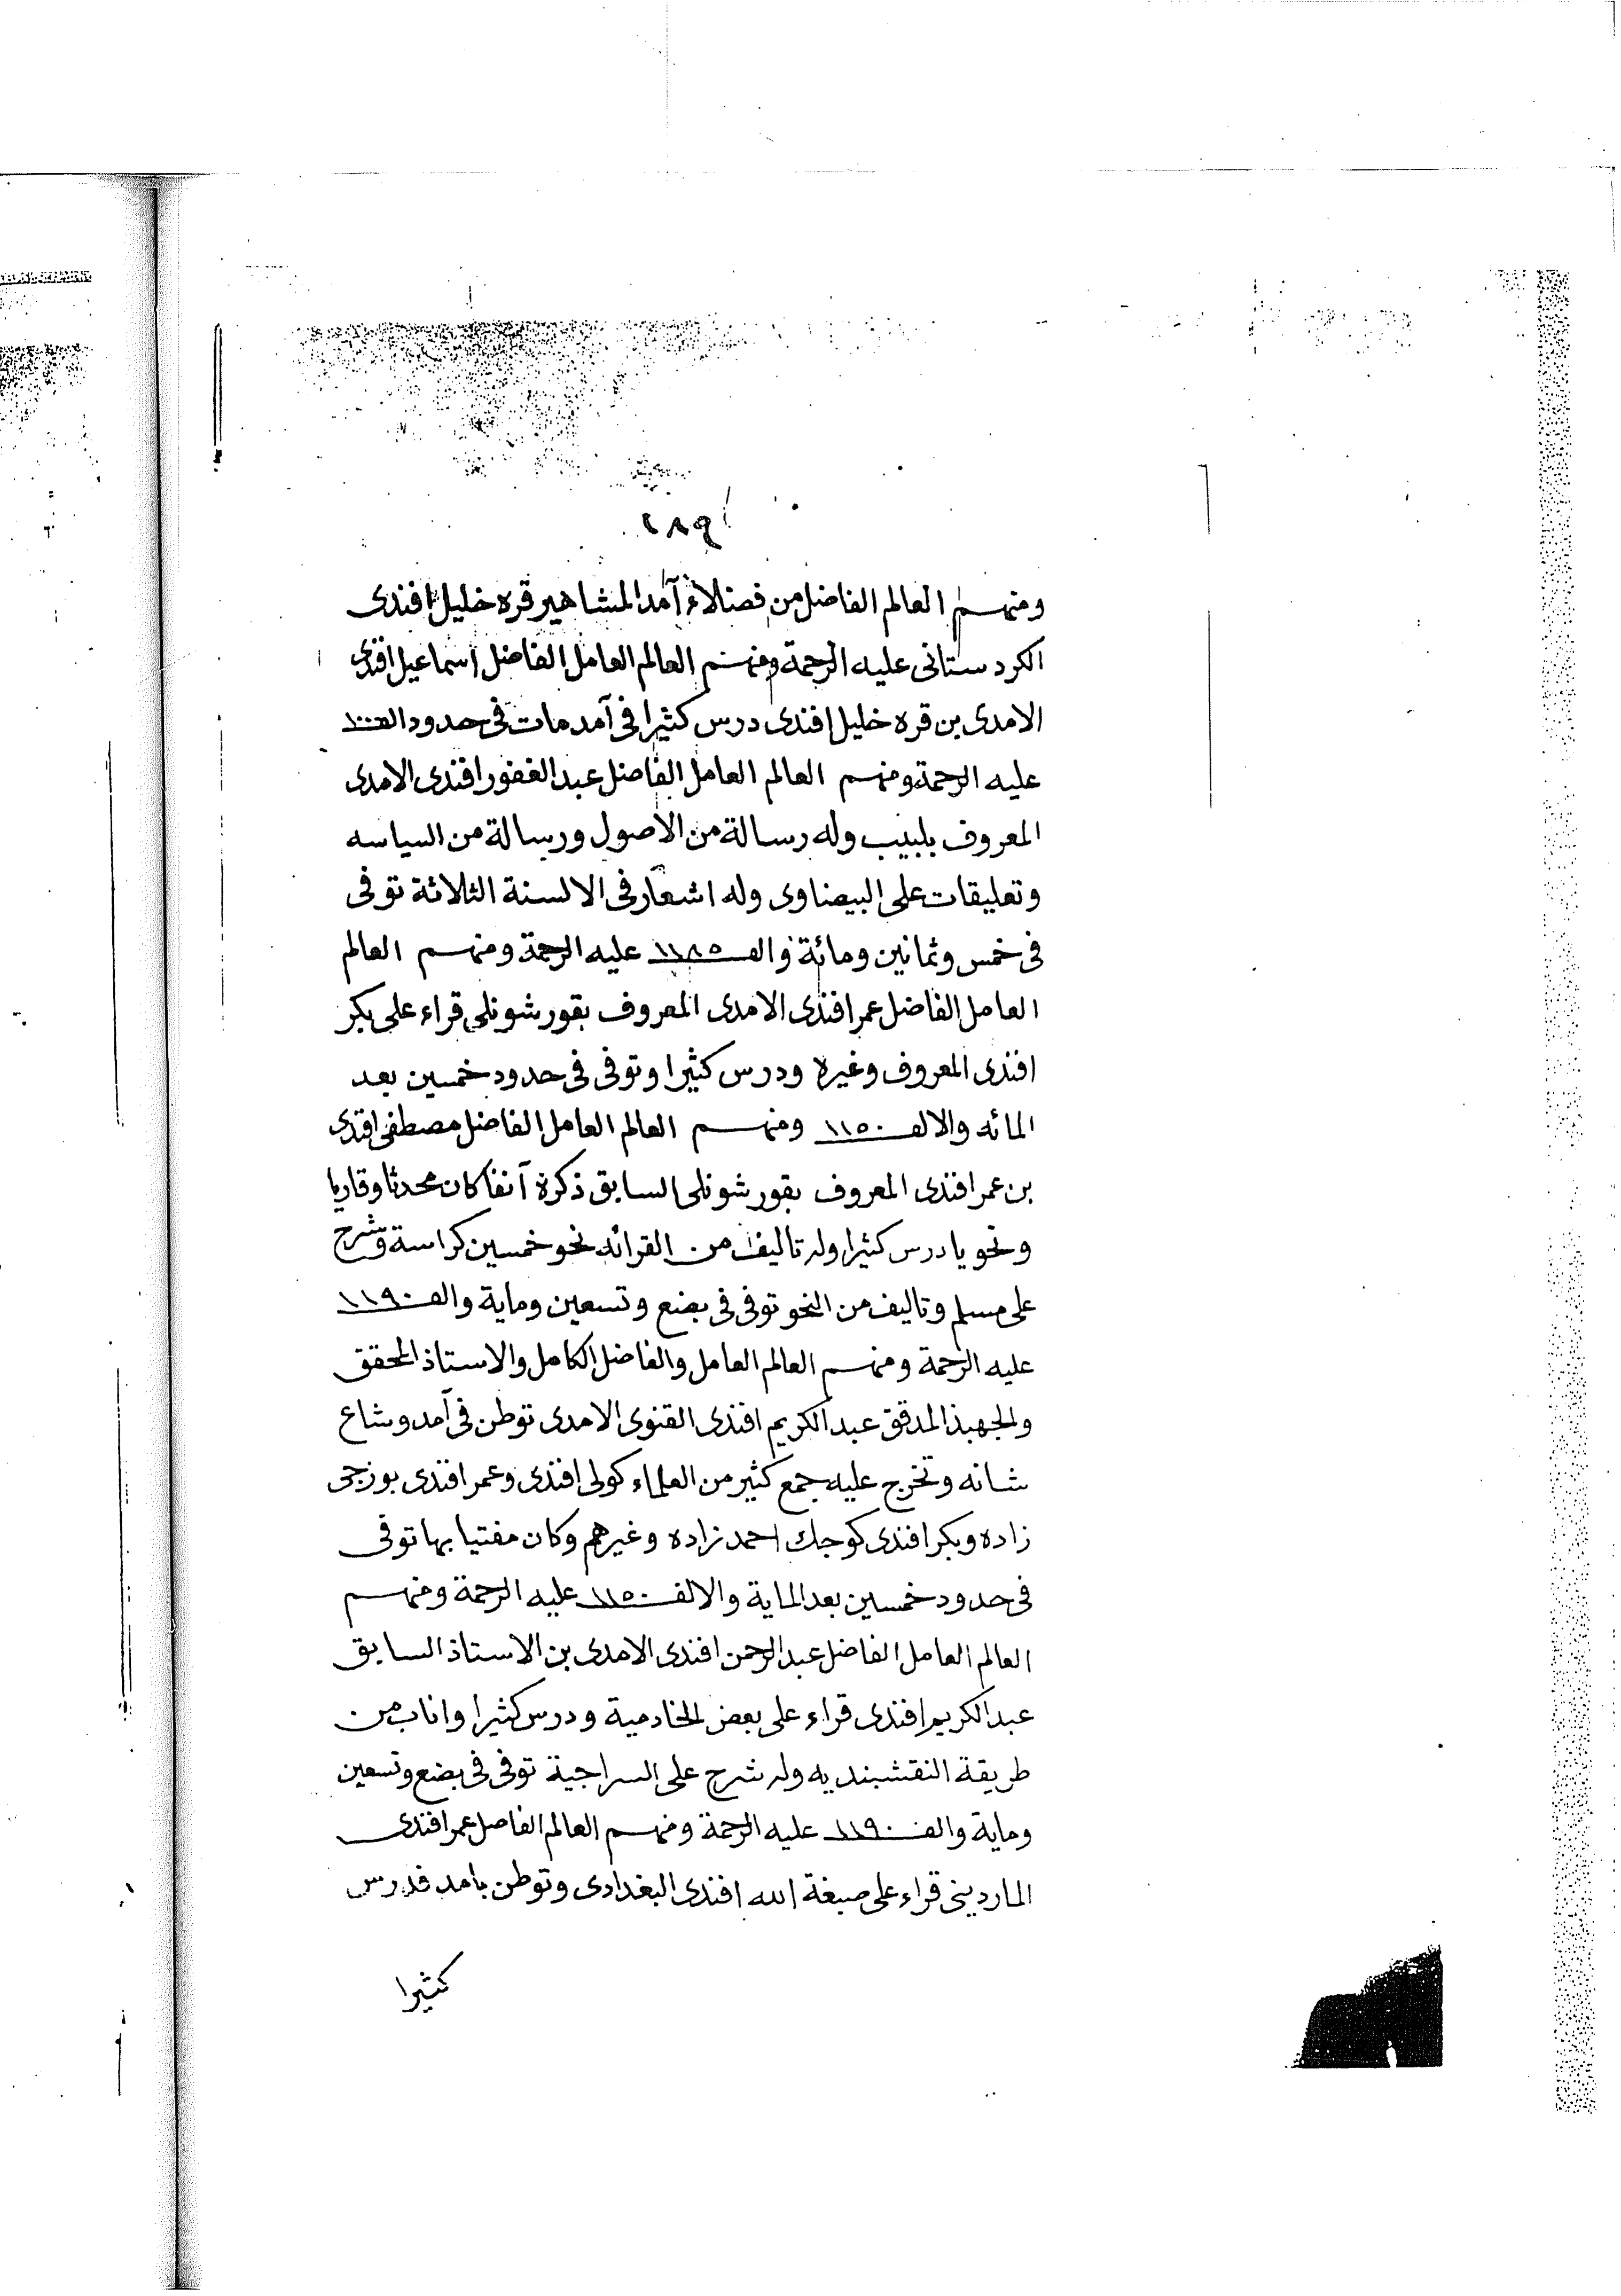 ٢٨٩
ومنهم العالم الفاضل من فضلاء آمد المشاهير قره خليل افندى
الكردستانى عليه الرحمة ومنهم العالم العامل الفاضل اسماعيل افندى
الامدى بن قره خليل افندى درس كثيرا فى آمد مات فى حدود الف
عليه الرحمة ومنهم العالم العامل الفاضل عبد الغفور افندى الامدى
المعروف بلبيب وله رسالة من الاصول ورسالة من السياسه
وتعليقات على البيضاوى وله اشعار فى الالسنة الثلاثة توفى
فى خمس وثمانين ومائة والف ١١٨٥ عليه الرحمة ومنهم العالم
العامل الفاضل عمر افندى الامدى المعروف بقورشونلى قراء على بكر
افندى المعروف وغيره ودرس كثيرا وتوفى فى حدود خمسين بعد
المائه والالف ١١٥٠ ومنهم العالم العامل الفاضل مصطفى افندى
بن عمر افندى المعروف بقورشونلى السابق ذكرة آنفا كان محدثا وقاريا
ونحويا درس كثيرا وله تاليف من القرائه نحو خمسين كراسة وشرح
على مسلم وتاليف من النحو توفى فى بضع وتسعين وماية والف ١١٩٠
عليه الرحمة ومنهم العالم العامل والفاضل الكامل والاستاذ المحقق
والجهبذ المدقق عبد الكريم افندى القنوى الامدى توطن فى آمد وشاع
شانه وتخرج عليه جمع كثير من العلماء كولى افندى وعمر افندى بوزجى
زاده وبكر افندى كوجك احمد زاده وغيرهم وكان مفتيا بها توفى
فى حدود خمسين بعد الماية والالف ١١٥٠ عليه الرحمة ومنهم
العالم العامل الفاضل عبد الرحمن افندى الامدى بن الاستاذ السابق
عبد الكريم افندى قراء على بعض الخادمية ودرس كثيرا واناب من
طريقة النقشبنديه وله شرح على السراجية توفى فى بضع وتسعين
وماية والف ١١٩٠ عليه الرحمة ومنهم العالم الفاضل عمر افندى
الماردينى قراء على صبغة الله افندى البغدادى وتوطن بامد فدرس
كثيرا